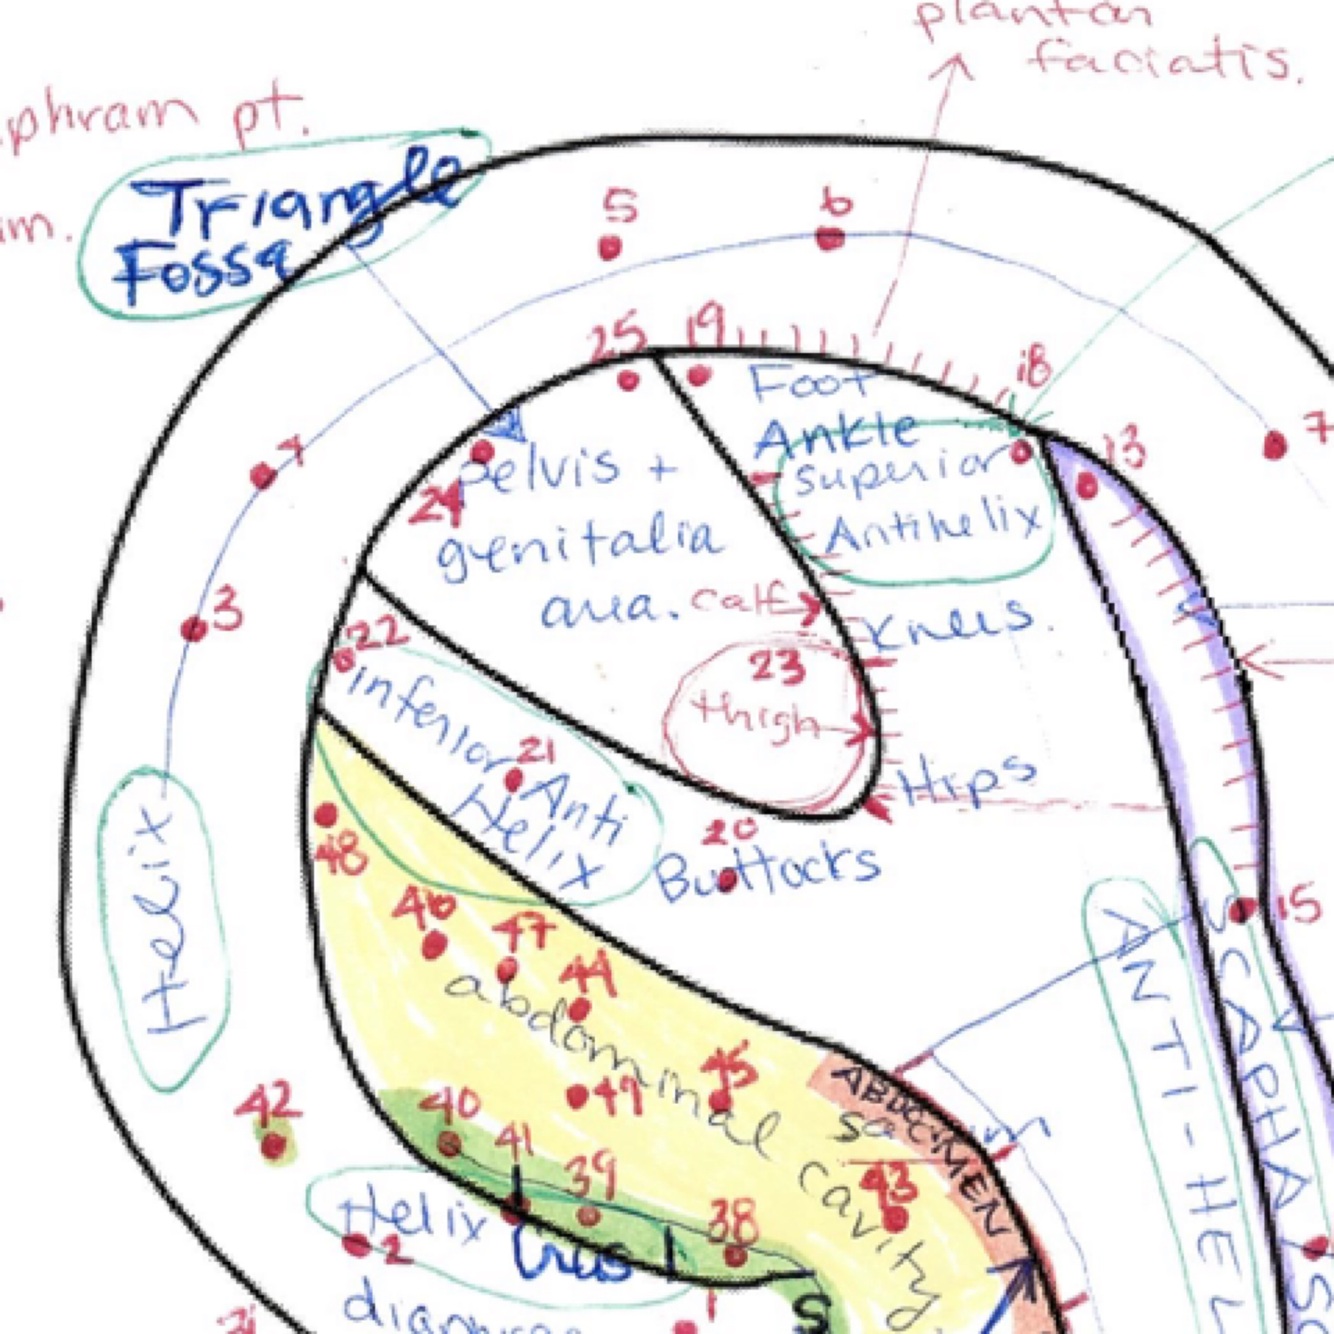 plantar
faciatis.
phram pt.
Triangle
Fossa
im.
5
6
25
19
18
Foot
Ankle
superior
Antihelix
7
13
4
24
pelvis +
genitalia
area.
calf
3
22
Knees.
23
thigh
inferior Anti
Helix
21
Hips
20
Buttocks
48
46
47
44
15
Helix
abdominal cavity.
ABDOMEN
ANTI-HEL
SCAPHA
45
49
42
40
41
39
43
38
Helix Crus 1
2
1
S